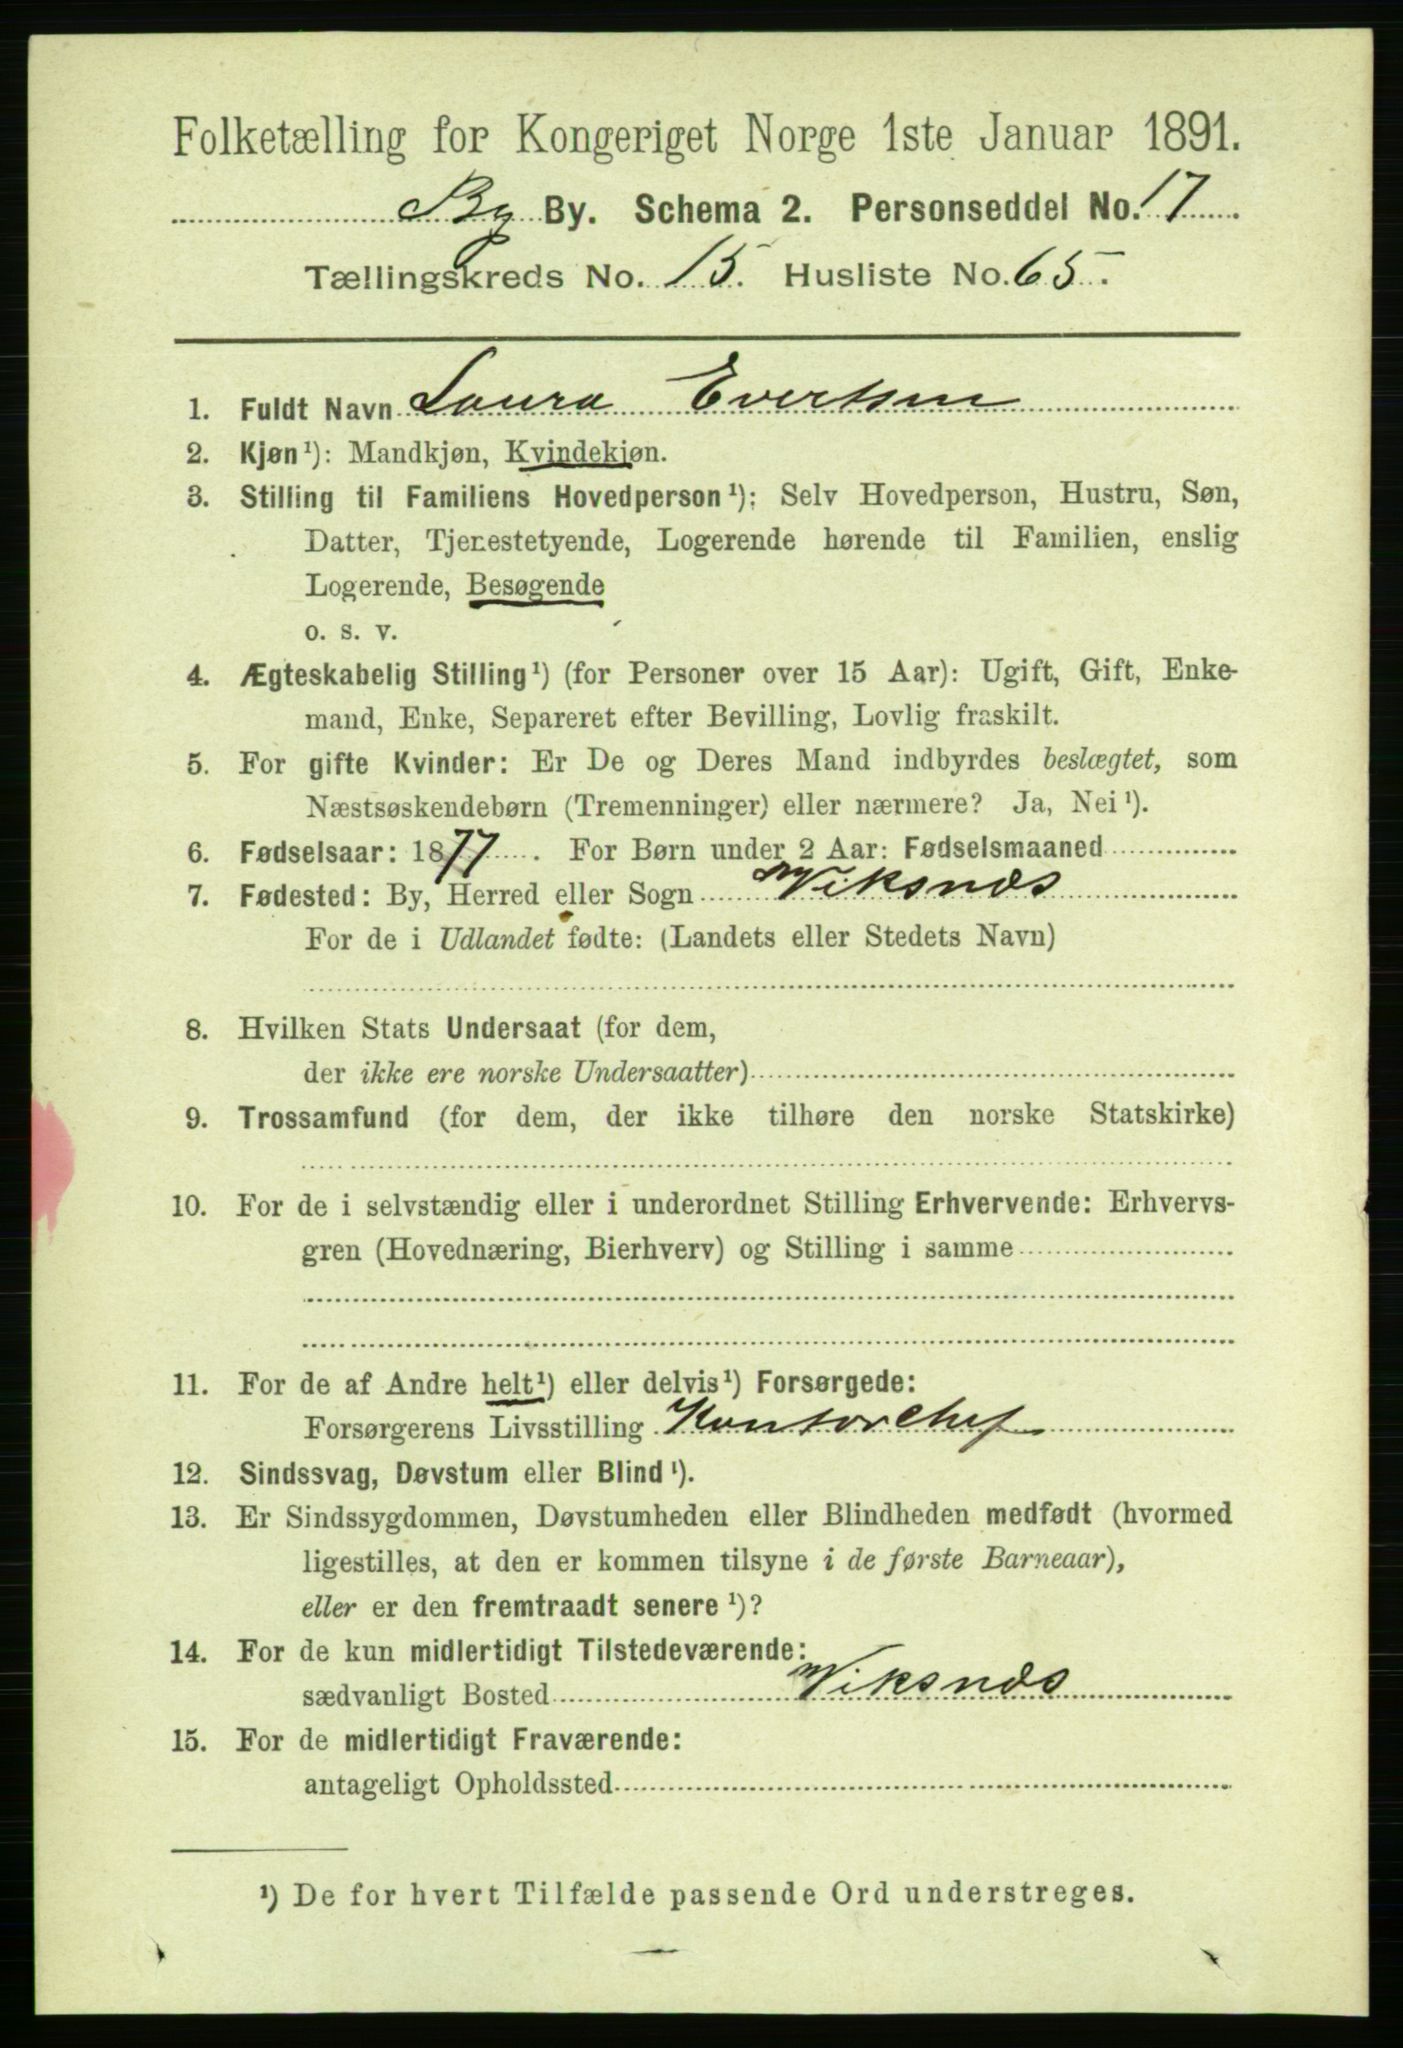 Folketælling for Kongeriget Norge 1ste Januar 1891.
By. Schema 2. Personseddel No. 17
Tællingskreds No. 15. Husliste No. 65.
1. Fuldt Navn Laura Evertsen
2. Kjøn¹): Mandkjøn, Kvindekjøn.
3. Stilling til Familiens Hovedperson¹): Selv Hovedperson, Hustru, Søn,
Datter, Tjenestetyende, Logerende hørende til Familien, enslig
Logerende, Besøgende
o. s. v.
4. Ægteskabelig Stilling¹) (for Personer over 15 Aar): Ugift, Gift, Enke-
mand, Enke, Separeret efter Bevilling, Lovlig fraskilt.
5. For gifte Kvinder: Er De og Deres Mand indbyrdes beslægtet, som
Næstsøskendebørn (Tremenninger) eller nærmere? Ja, Nei¹).
6. Fødselsaar: 1877. For Børn under 2 Aar: Fødselsmaaned
7. Fødested: By, Herred eller Sogn Wiksnæs
For de i Udlandet fødte: (Landets eller Stedets Navn)
8. Hvilken Stats Undersaat (for dem,
der ikke ere norske Undersaatter)
9. Trossamfund (for dem, der ikke tilhøre den norske Statskirke)
10. For de i selvstændig eller i underordnet Stilling Erhvervende: Erhvervs-
gren (Hovednæring, Bierhverv) og Stilling i samme
11. For de af Andre helt¹) eller delvis¹) Forsørgede:
Forsørgerens Livsstilling Kontorchef
12. Sindssvag, Døvstum eller Blind¹).
13. Er Sindssygdommen, Døvstumheden eller Blindheden medfødt (hvormed
ligestilles, at den er kommen tilsyne i de første Barneaar),
eller er den fremtraadt senere¹)?
14. For de kun midlertidigt Tilstedeværende:
sædvanligt Bosted Wiksnæs
15. For de midlertidigt Fraværende:
antageligt Opholdssted
¹) De for hvert Tilfælde passende Ord understreges.